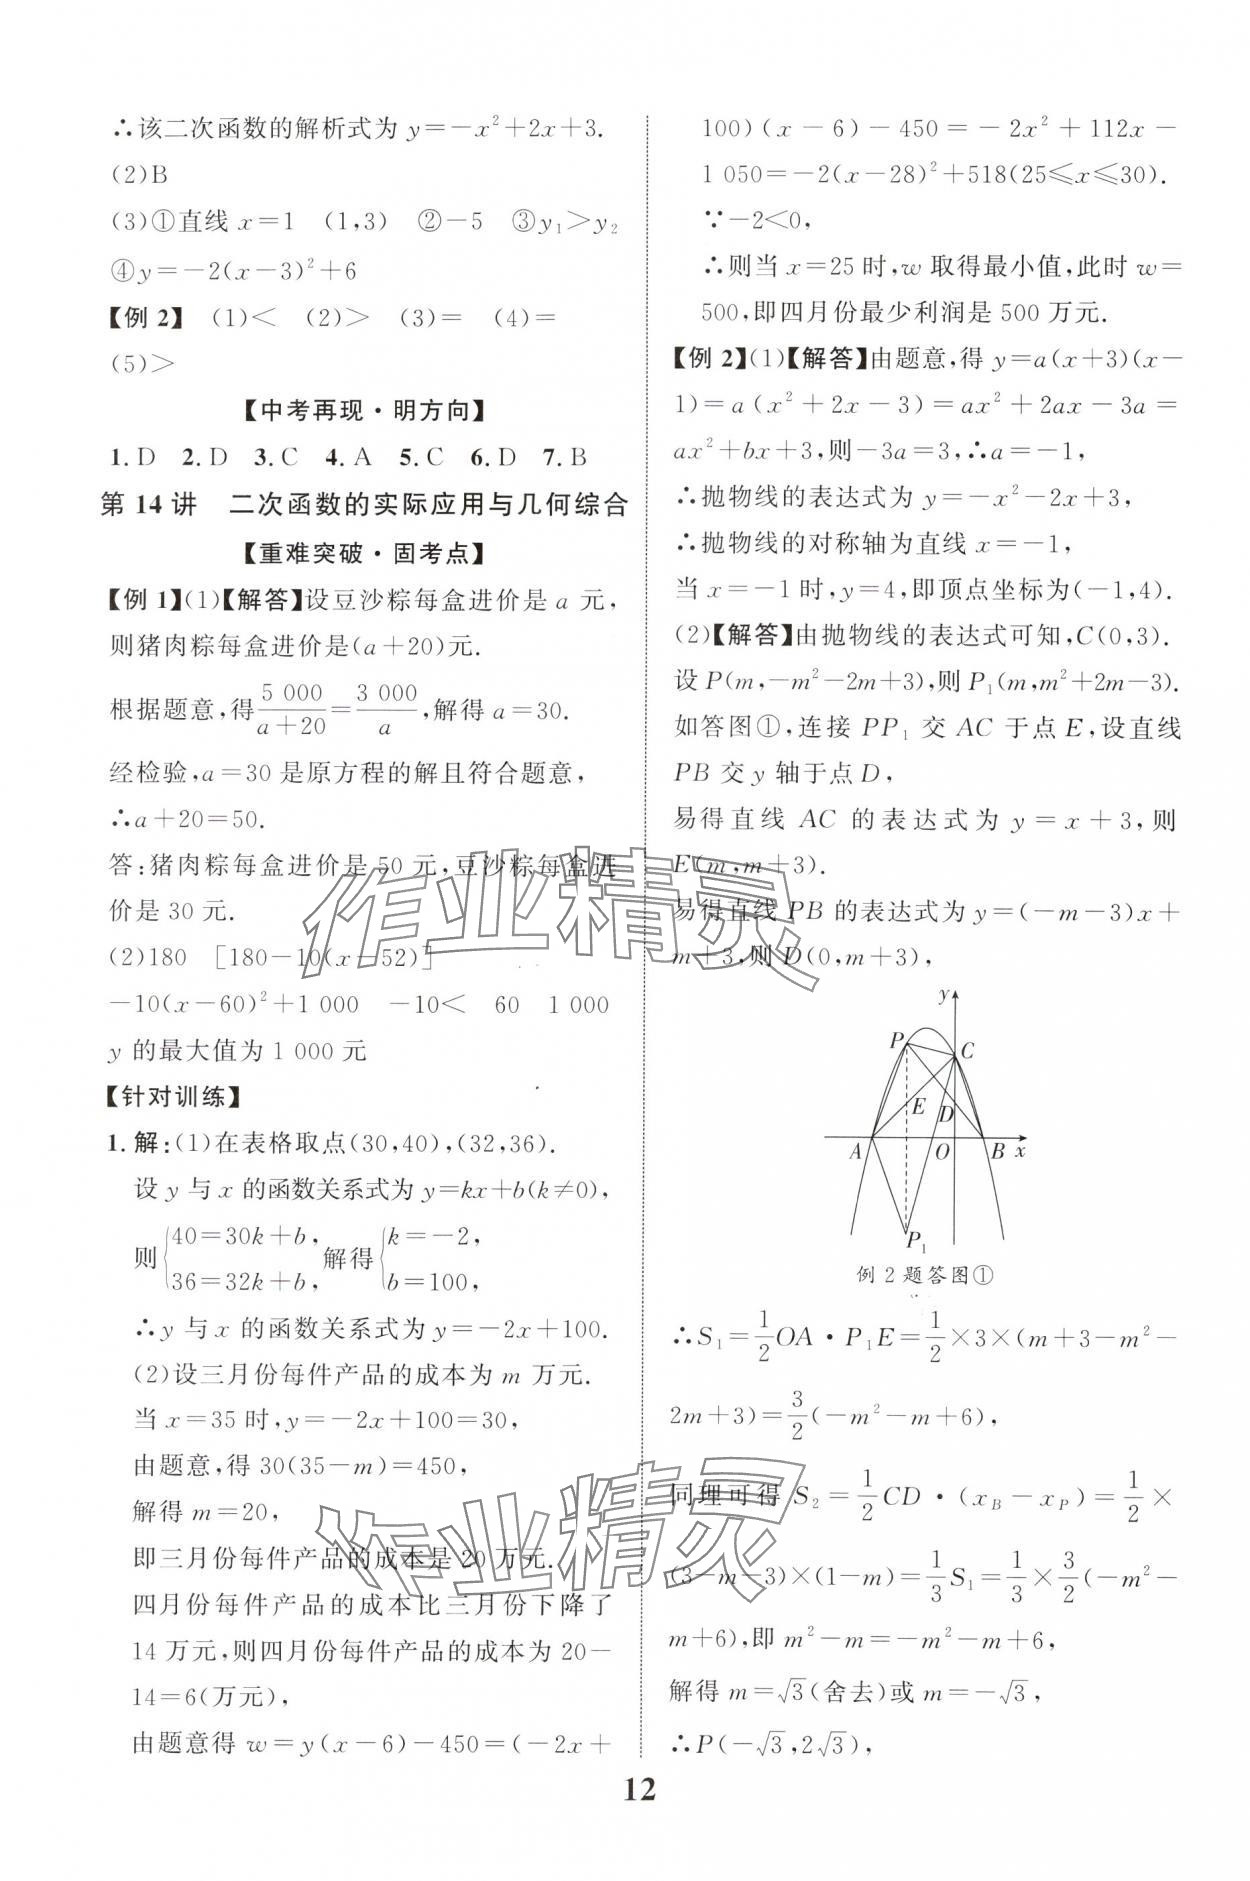 ∴该二次函数的解析式为 y=-x²+2x+3.
(2)B
(3)①直线 x=1 (1,3) ②-5 ③y₁>y₂
④y=-2(x-3)²+6
【例 2】 (1)< (2)> (3)= (4)=
(5)>
【中考再现·明方向】
1.D 2.D 3.C 4.A 5.C 6.D 7.B
第 14 讲 二次函数的实际应用与几何综合
【重难突破·固考点】
【例 1】(1)【解答】设豆沙粽每盒进价是 a 元,
则猪肉粽每盒进价是(a+20)元.
根据题意,得5 000/(a+20)=3 000/a,解得 a=30.
经检验,a=30 是原方程的解且符合题意,
∴a+20=50.
答:猪肉粽每盒进价是 50 元,豆沙粽每盒进
价是 30 元.
(2)180 [180-10(x-52)]
-10(x-60)²+1 000 -10< 60 1 000
y 的最大值为 1 000 元
【针对训练】
1.解:(1)在表格取点(30,40),(32,36).
设 y 与 x 的函数关系式为 y=kx+b(k≠0),
则{40=30k+b, 36=32k+b, 解得{k=-2, b=100,
∴y 与 x 的函数关系式为 y=-2x+100.
(2)设三月份每件产品的成本为 m 万元.
当 x=35 时,y=-2x+100=30,
由题意,得 30(35-m)=450,
解得 m=20,
即三月份每件产品的成本是 20 万元.
四月份每件产品的成本比三月份下降了
14 万元,则四月份每件产品的成本为 20-
14=6(万元),
由题意得 w=y(x-6)-450=(-2x+
100)(x-6)-450=-2x²+112x-
1 050=-2(x-28)²+518(25≤x≤30).
∵-2<0,
∴则当 x=25 时,w 取得最小值,此时 w=
500,即四月份最少利润是 500 万元.
【例 2】(1)【解答】由题意,得 y=a(x+3)(x-
1)=a(x²+2x-3)=ax²+2ax-3a=
ax²+bx+3,则-3a=3,∴a=-1,
∴抛物线的表达式为 y=-x²-2x+3,
∴抛物线的对称轴为直线 x=-1,
当 x=-1 时,y=4,即顶点坐标为(-1,4).
(2)【解答】由抛物线的表达式可知,C(0,3).
设 P(m,-m²-2m+3),则 P₁(m,m²+2m-3).
如答图①,连接 PP₁ 交 AC 于点 E,设直线
PB 交 y 轴于点 D,
易得直线 AC 的表达式为 y=x+3,则
E(m,m+3).
易得直线 PB 的表达式为 y=(-m-3)x+
m+3,则 D(0,m+3),
y
P
C
E
D
A
O
B
x
P₁
例 2 题答图①
∴S₁=1/2 OA·P₁E=1/2×3×(m+3-m²-
2m+3)=3/2(-m²-m+6),
同理可得 S₂=1/2 CD·(x_B-x_P)=1/2×
(3-m-3)×(1-m)=1/3 S₁=1/3×3/2(-m²-
m+6),即 m²-m=-m²-m+6,
解得 m=√3(舍去)或 m=-√3,
∴P(-√3,2√3),
12
作业精灵
作业精灵